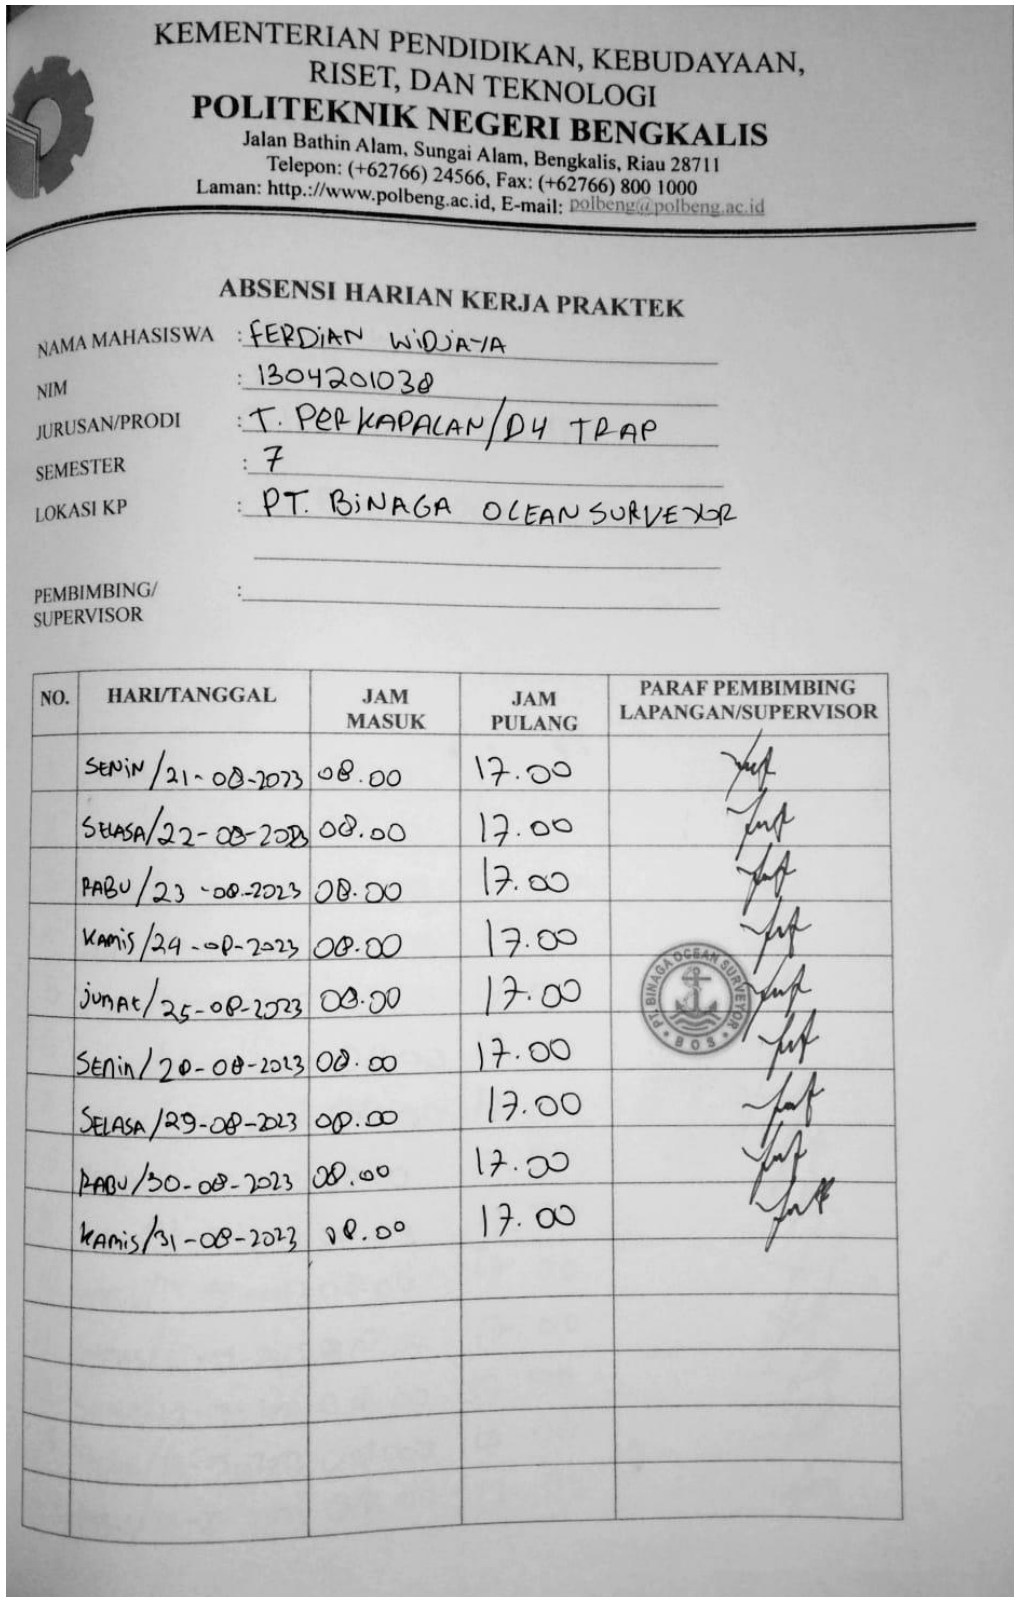 KEMENTERIAN PENDIDIKAN, KEBUDAYAAN,
RISET, DAN TEKNOLOGI
POLITEKNIK NEGERI BENGKALIS
Jalan Bathin Alam, Sungai Alam, Bengkalis, Riau 28711
Telepon: (+62766) 24566, Fax: (+62766) 800 1000
Laman: http.://www.polbeng.ac.id, E-mail: polbeng@polbeng.ac.id
ABSENSI HARIAN KERJA PRAKTEK
NAMA MAHASISWA : FERDIAN WIDJAYA
NIM : 1304201038
JURUSAN/PRODI : T. PERKAPALAN/D4 TRAP
SEMESTER : 7
LOKASI KP : PT. BINAGA OCEAN SURVEYOR
PEMBIMBING/ :
SUPERVISOR
NO. HARI/TANGGAL JAM MASUK JAM PULANG PARAF PEMBIMBING LAPANGAN/SUPERVISOR
SENIN/21-08-2023 08.00 17.00
SELASA/22-08-2023 08.00 17.00
RABU/23-08-2023 08.00 17.00
KAMIS/24-08-2023 08.00 17.00
JUMAT/25-08-2023 08.00 17.00
PT. BINAGA OCEAN SURVEYOR
BOS
SENIN/28-08-2023 08.00 17.00
SELASA/29-08-2023 08.00 17.00
RABU/30-08-2023 08.00 17.00
KAMIS/31-08-2023 08.00 17.00